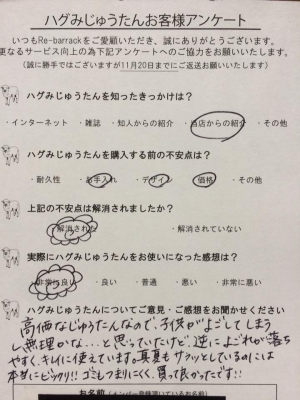 ハグみじゅうたんお客様アンケート
いつもRe-barrackをご愛顧いただき、誠にありがとうございます。
更なるサービス向上の為下記アンケートへのご協力をお願いいたします。
(誠に勝手ではございますが11月20日までにご返送お願いいたします)
ハグみじゅうたんを知ったきっかけは？
・インターネット ・雑誌 ・知人からの紹介 ・当店からの紹介 ・その他
ハグみじゅうたんを購入する前の不安点は？
・耐久性 ・お手入れ ・デザイン ・価格 ・その他
上記の不安点は解消されましたか？
・解消された ・解消されていない
実際にハグみじゅうたんをお使いになった感想は？
・非常に良い ・良い ・普通 ・悪い ・非常に悪い
ハグみじゅうたんについてご意見・ご感想をお聞かせください
高価なじゅうたんなので、子供がよごしてしまう
し無理かな…と思っていたけど、逆によごれが落ち
やすく、キレイに使えています。真夏もサラッとしているのには
本当にビックリ!! ゴミもつまりにくく、買って良かったです!!
お名前(メンバー登録頂いているお名前)